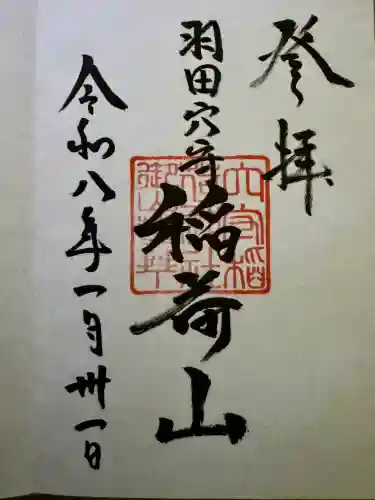 登拝
羽田穴守
稲荷山
令和八年一月卅一日